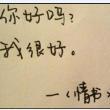 你好吗？
我很好。
—《情书》